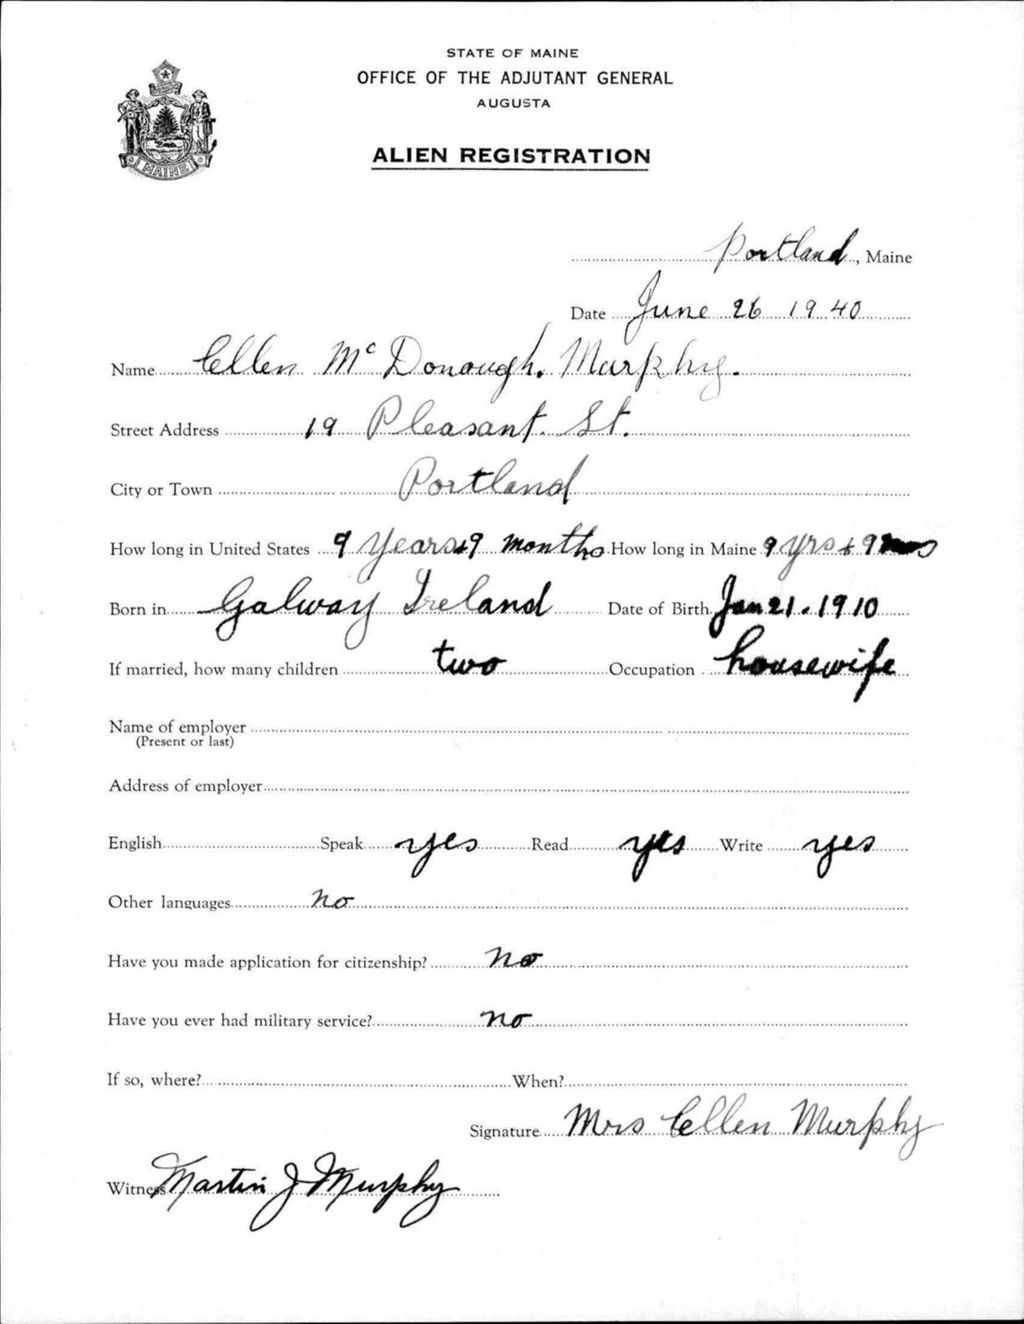 STATE OF MAINE
OFFICE OF THE ADJUTANT GENERAL
AUGUSTA
ALIEN REGISTRATION
MAINE
Portland, Maine
Date June 26 1940
Name Ellen Mc Donough. Murphy.
Street Address 19 Pleasant. St.
City or Town Portland
How long in United States 9 Years+9 months How long in Maine 9 yrs + 9 mos
Born in Galway Ireland Date of Birth Jan 21. 1910
If married, how many children two Occupation housewife
Name of employer
(Present or last)
Address of employer
English Speak yes Read yes Write yes
Other languages no
Have you made application for citizenship? no
Have you ever had military service? no
If so, where? When?
Signature Mrs Ellen Murphy
Witness Martin J Murphy